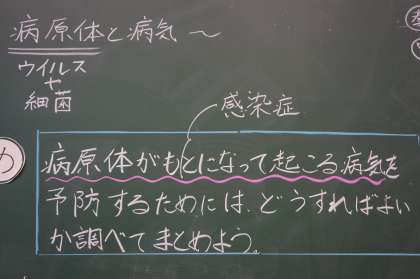 病原体と病気～
ウイルス
や
細菌
感染症
め
病原体がもとになって起こる病気を
予防するためには、どうすればよい
か調べてまとめよう。